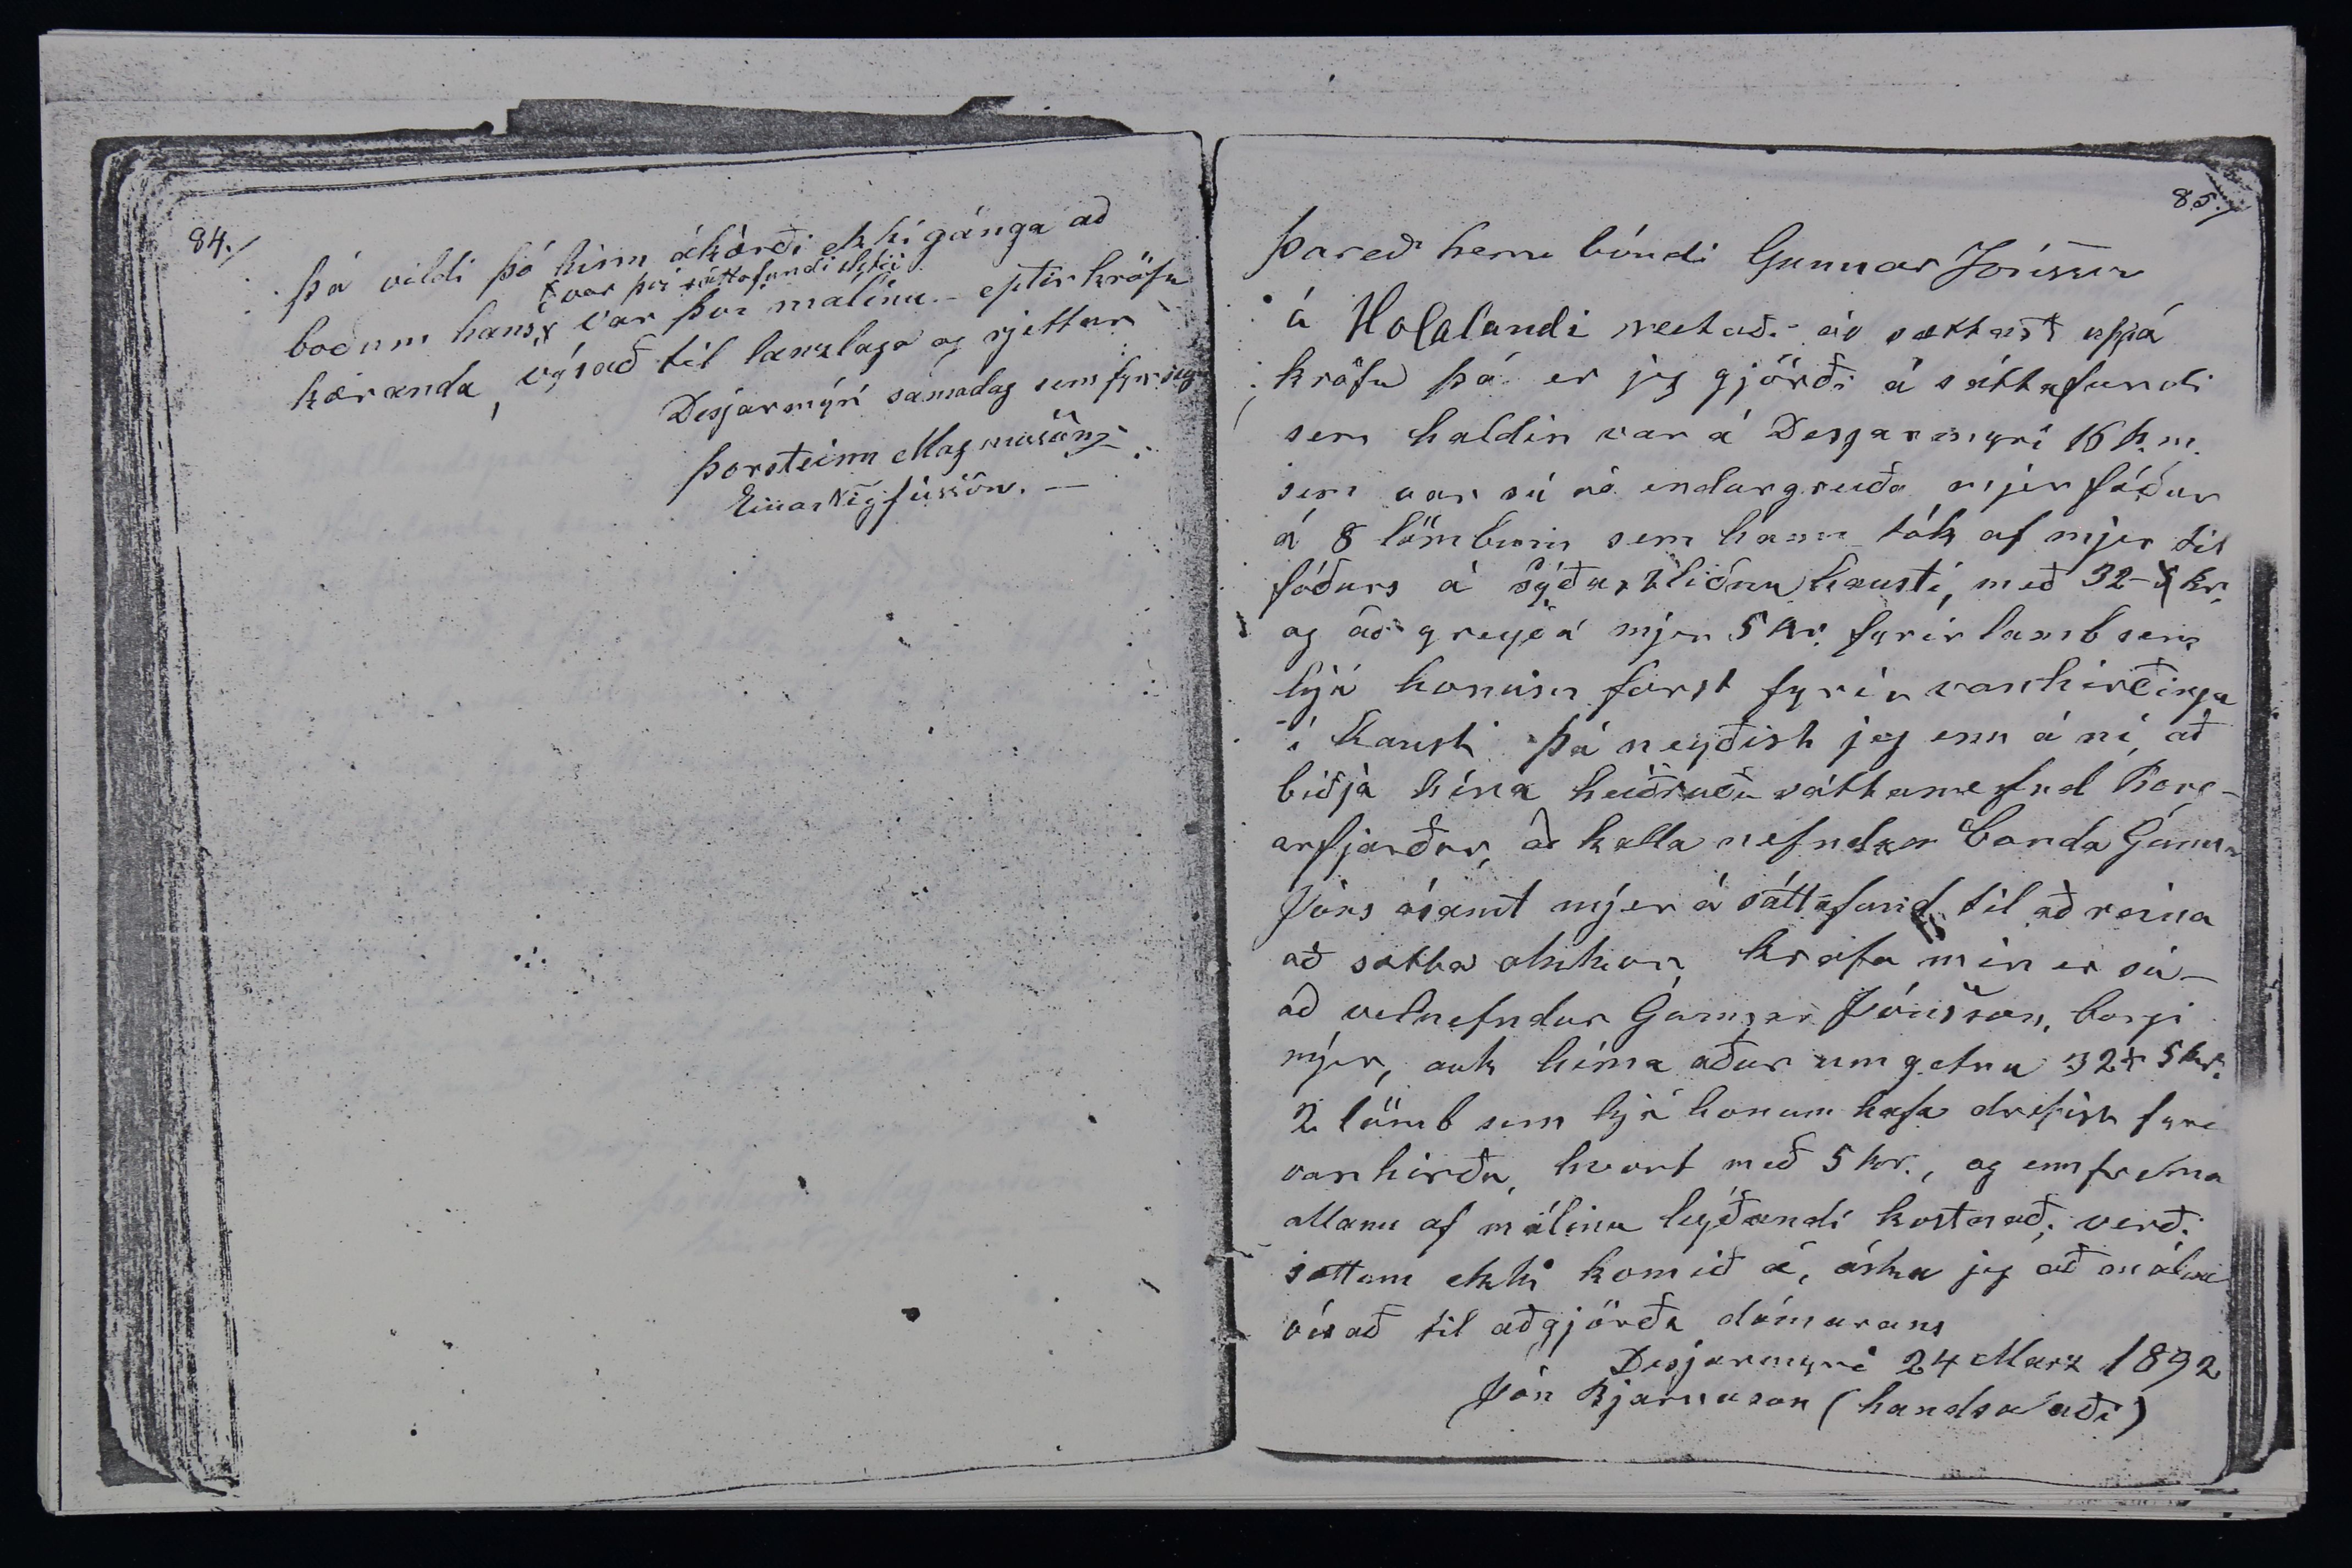 84./
þá vildi þó hinn ákærði ekki gánga að
var því sáttafundi slitið
boðum hans, var því malínu - eptir kröfu
kæranda, výsað til lanzlaga og rjettar
Desjarmýri samadag sem fyr segir
Þorsteinn Magnussöng
Einar Vigfússon. —
85./
Þareð herra bóndi Gunnar Jónsson
á Hólalandi neitað. að sættast uppá
kröfu þá er jeg gjörði á sáttafundi
sem haldin var á Desjarmyri 16 þ.m.
sem var sú að endurgreiða mjer fóður
á 8 lömbum sem hann tók af mjer til
fóðurs á sýðastliðnu hausti, með 32 kr.
og að greyða mjer 5 kr. fyrir lamb sem
hjá honum forst fyrir vanhirðingu
í haust þá neyðist jeg enn á ní að
biðja hina heiðruðu sáttanefnd Borg-
arfjarðar, að kalla nefndan bonda Gunnar
Jóns ásamt mjer á sáttafund til að reina
að sætta okkur, krafa mín er sú -
að velnefndur Gunnar Jónsson, borgi
mjer, auk hinna aður umgetnu 32 + 5 kr.
2 lömb sem hjá honum hafa drepist fyrir
vanhirðu, hvort með 5 kr., og ennfremur
allann af málinu leyðandi kostnað; verði
sættum ekki komið á, áska jeg að málinu
vísað til aðgjörða dómarans
Desjarmyri 24 Marz 1892
Jón Bjarnason (handsalaði)